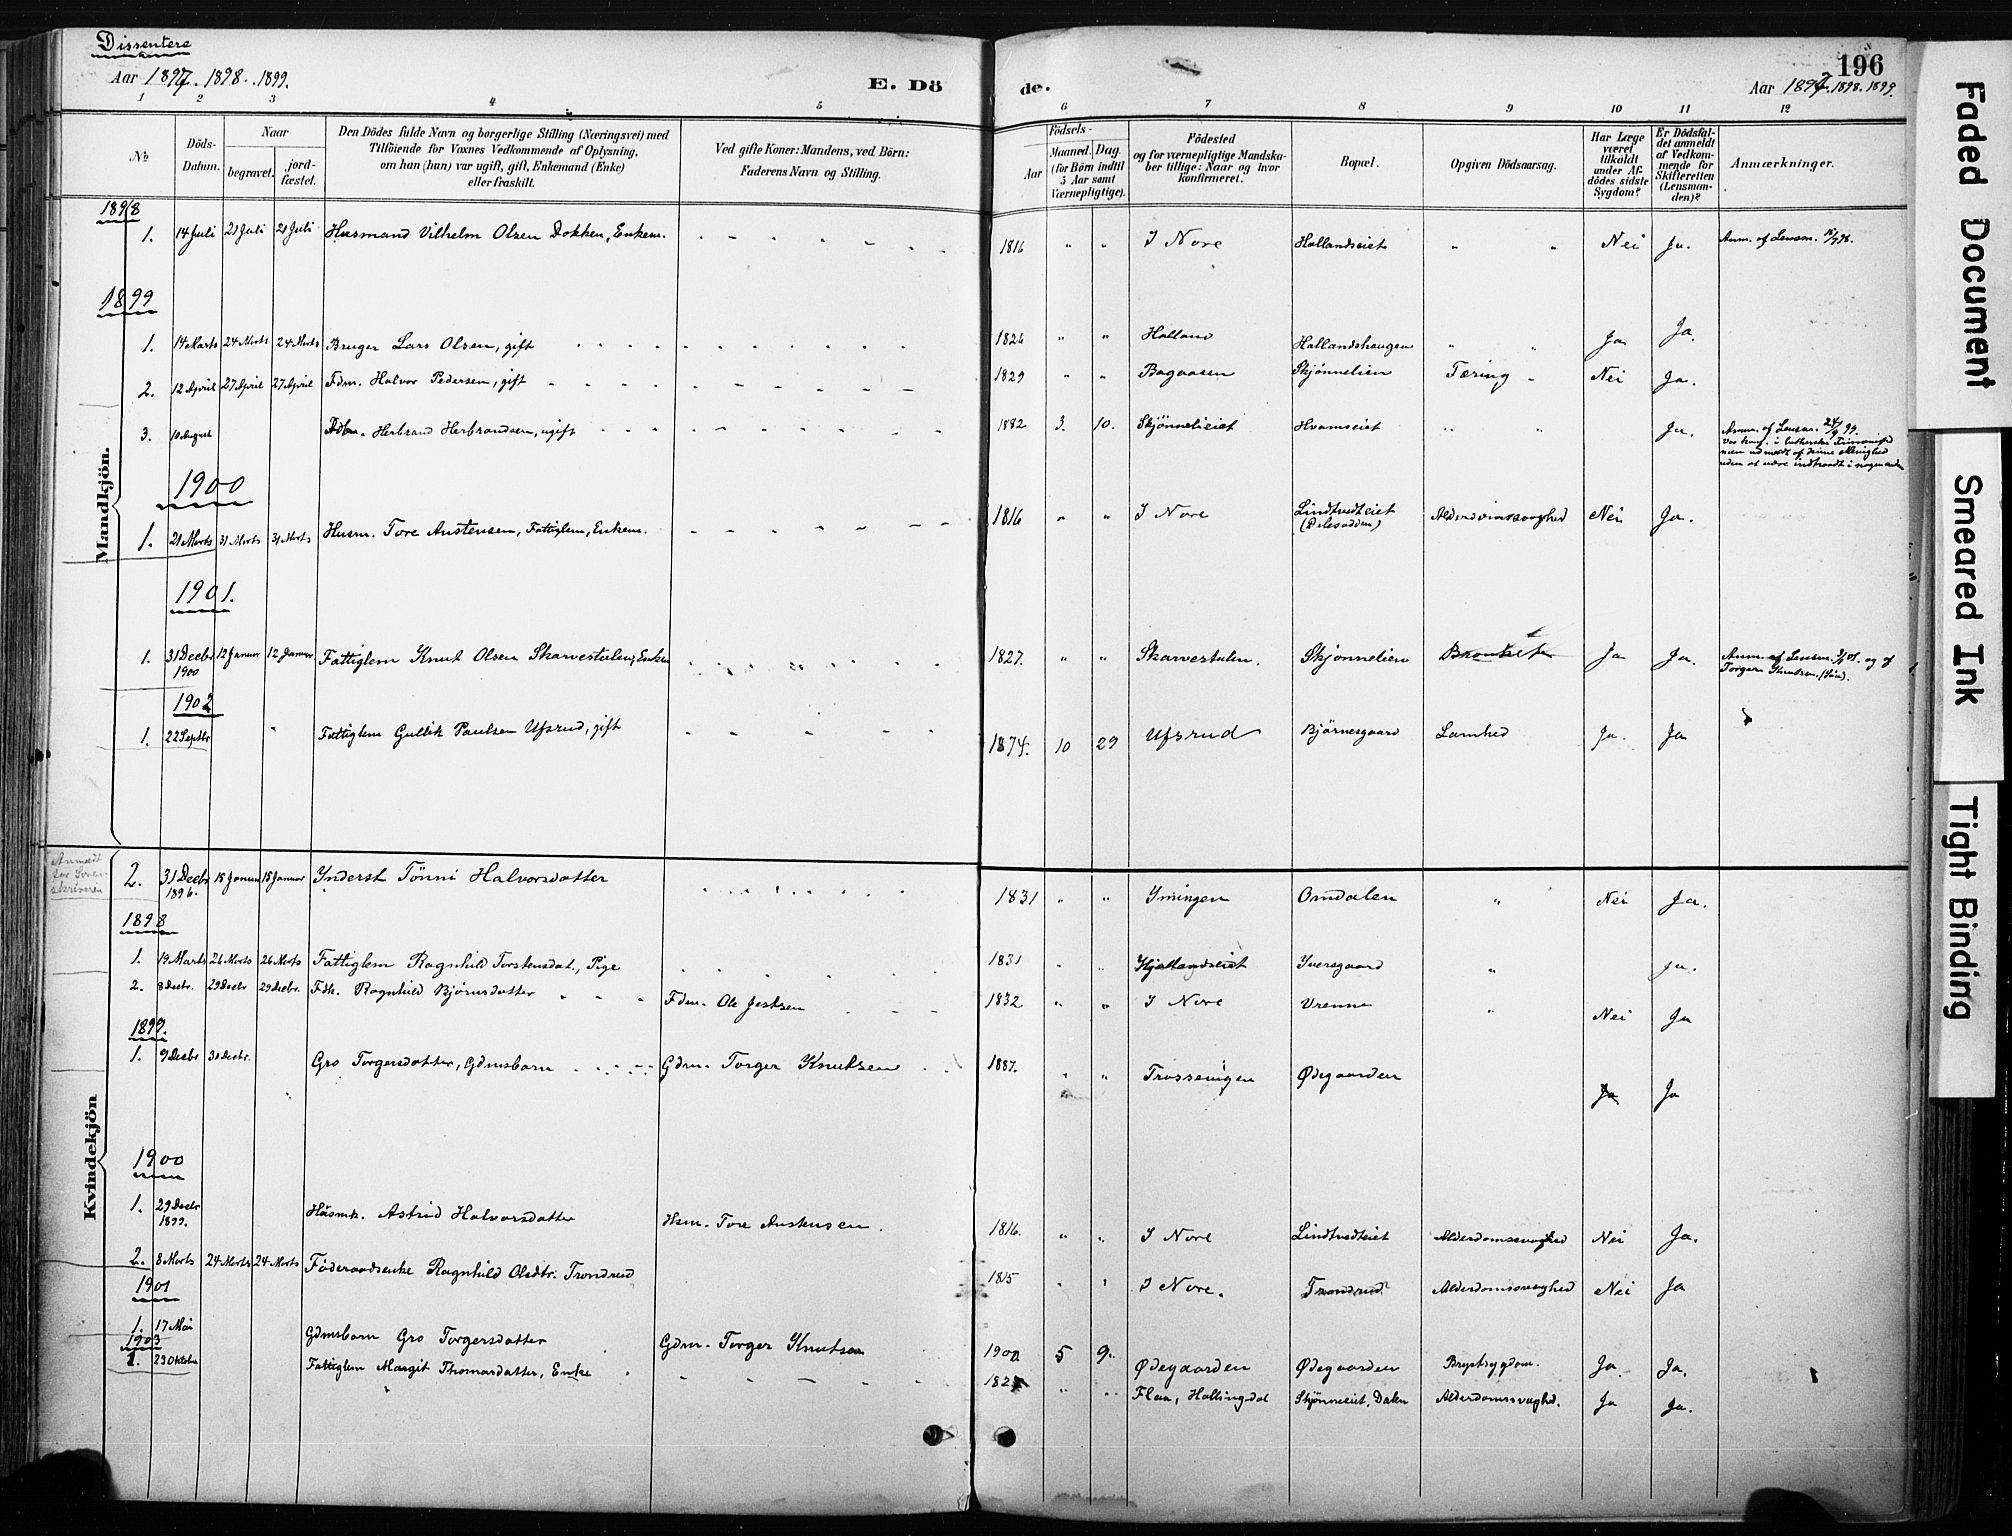 Dissentere
Aar 1897. 1898. 1899.
E. Dö
de.
196
Aar 1897. 1898. 1899.
1 2 3 4 5 6 7 8 9 10 11 12
No
Döds-Datum.
Naar
begravet.
jord-fæstet.
Den Dödes fulde Navn og borgerlige Stilling (Næringsvei) med
Tilföiende for Voxnes Vedkommende af Oplysning,
om han (hun) var ugift, gift, Enkemand (Enke)
eller fraskilt.
Ved gifte Koner: Mandens, ved Börn:
Faderens Navn og Stilling.
Födsels-
Aar
Maaned. Dag
(for Börn indtil
5 Aar samt
Værnepligtige).
Födested
og for værnepligtige Mandska-
ber tillige: Naar og hvor
konfirmeret.
Bopæl.
Opgiven Dödsaarsag.
Har Læge
været
tilkaldt
under Af-
dödes sidste
Sygdom?
Er Dödsfal-
det anmeldt
af Vedkom-
mende for
Skifteretten
(Lensman-
den)?
Anmærkninger.
Mandkjön.
1898
1. 14 Juli 21 Juli 21 Juli Husmand Vilhelm Olsen Dokken, Enkem. 1816 " " I Nore Hollandseiet " " Nei Ja. Anm. af Lensm.
1899
1. 14 Marts 24 Marts 24 Marts Bruger Lars Olsen, gift 1824 " " Holland Hallandshaugen " " Ja Ja.
2. 12 April 27 April 27 April Fdm. Halvor Pedersen, gift 1829 " " Bagaasen Skjønnelien Tæring Nei Ja.
3. 10 August Herbrand Herbrandsen, ugift 1882 3. 10. Skjønnelieiet Hvamseiet " " Ja. Anm. af Lensm. 24/9 99.
1900
1. 21 Marts 31 Marts 31 Marts Husm. Tore Austensen, Fattiglem, Enkem. 1816 " " I Nore Lindtvedteiet Alderdomssvaghed Nei Ja.
1901.
1. 31 Decbr 1900 12 Januar 12 Januar Fattiglem Knut Olsen Skarvestulen, Enkem 1827. " " Skarvestulen. Skjønnelien Bronkit Ja Ja. Anm. af Lensm. og af
Torger Knutsen.
1902
1. 22 Septbr Fattiglem Gullik Paulsen Ufsrud, gift 1874. 10 29 Ufsrud Bjørnesgaard Lamhed Ja. Ja
Kvindekjön
Anmeldt
for Soren-
skriveren
2. 31 Decbr 1896. 15 Januar 15 Januar Inderst Tönni Halvorsdatter 1831 " " Ymingen Omdalen " Nei Ja.
1898
1. 19 Marts 26 Marts 26 Marts Fattiglem Ragnhild Torstensdat., Pige 1831 " " Hjallandseiet Iversgaard " Ja.
2. 8 Decbr. 29 Decbr 29 Decbr. Fdk. Ragnhild Bjørnsdatter Fdm. Ole Jestsen 1832 " " I Nore Vrenne " Nei Ja
1899.
1. 9 Decbr 30 Decbr. Gro Torgersdatter, Gdmsbarn Gdm. Torger Knutsen 1887. " " Trossevigen Ødegaarden Ja Ja
1900
1. 29 Decbr 1899. Husmk. Astrid Halvorsdatter Hsm. Tore Austensen. 1816. " " I Nore Lindtvedteiet Alderdomssvaghed Nei Ja.
2. 8 Marts 24 Marts 24 Marts Føderaadsenke Ragnhild Olsdtr. Trondrud 1815 " " I Nore. Trondrud Alderdomssvaghed Nei Ja
1901
1. 17 Mai Gdmsbarn Gro Torgersdatter Gdm. Torger Knutsen 1900 5 9. Ødegaarden Ødegaarden Brystsygdom. Ja. Ja.
1903
1. 23 Oktober Fattiglem Margit Thomasdatter, Enke " " Flaa, Hallingdal Skjønneeiet, Dalen Alderdomssvaghed. Ja Ja.
Faded Document
Smeared Ink
Tight Binding